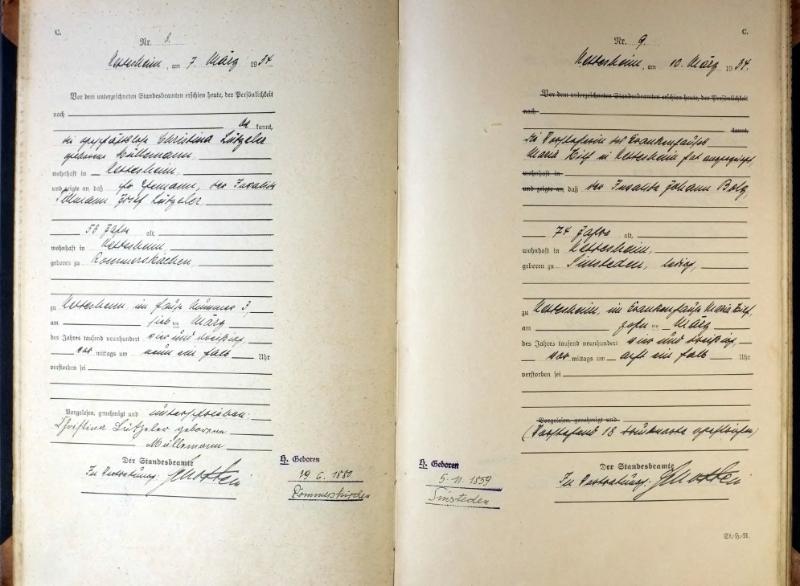 C.
Nr. 8.
Nettesheim, am 7. März 1934.
Vor dem unterzeichneten Standesbeamten erschien heute, der Persönlichkeit
nach
be kannt,
die geschäftslose Christina Lützeler
geborene Müllemann
wohnhaft in Nettesheim
und zeigte an, daß ihr Ehemann, der Invalide
Tillmann Josef Lützeler
53 Jahre alt,
wohnhaft in Nettesheim
geboren zu Rommerskirchen
zu Nettesheim im Hause Nummer 3,
am sieb ten März
des Jahres tausend neunhundert vier und dreißig
vor mittags um neun ein halb Uhr
verstorben sei
Vorgelesen, genehmigt und unterschrieben.
Christina Lützeler geborene
Müllemann
Der Standesbeamte
In Vertretung:
H. Geboren
6. 1880
Rommerskirchen
C.
Nr. 9.
Nettesheim, am 10. März 1934.
Vor dem unterzeichneten Standesbeamten erschien heute, der Persönlichkeit
nach
kannt,
Die Vorsteherin des Krankenhauses
Maria Hilf in Nettesheim hat angezeigt
wohnhaft in
und zeigte an, daß der Invalide Johann Bolg,
74 Jahre alt,
wohnhaft in Nettesheim,
geboren zu Sinsteden, ledig,
zu Nettesheim, im Krankenhause Maria Hilf,
am zehn ten März
des Jahres tausend neunhundert vier und dreißig
vor mittags um acht ein halb Uhr
verstorben sei
Vorgelesen, genehmigt und
(Vorstehend 15 Druckworte gestrichen)
Der Standesbeamte
In Vertretung:
H. Geboren
5. 11. 1859
Sinsteden
St.-H.-R.